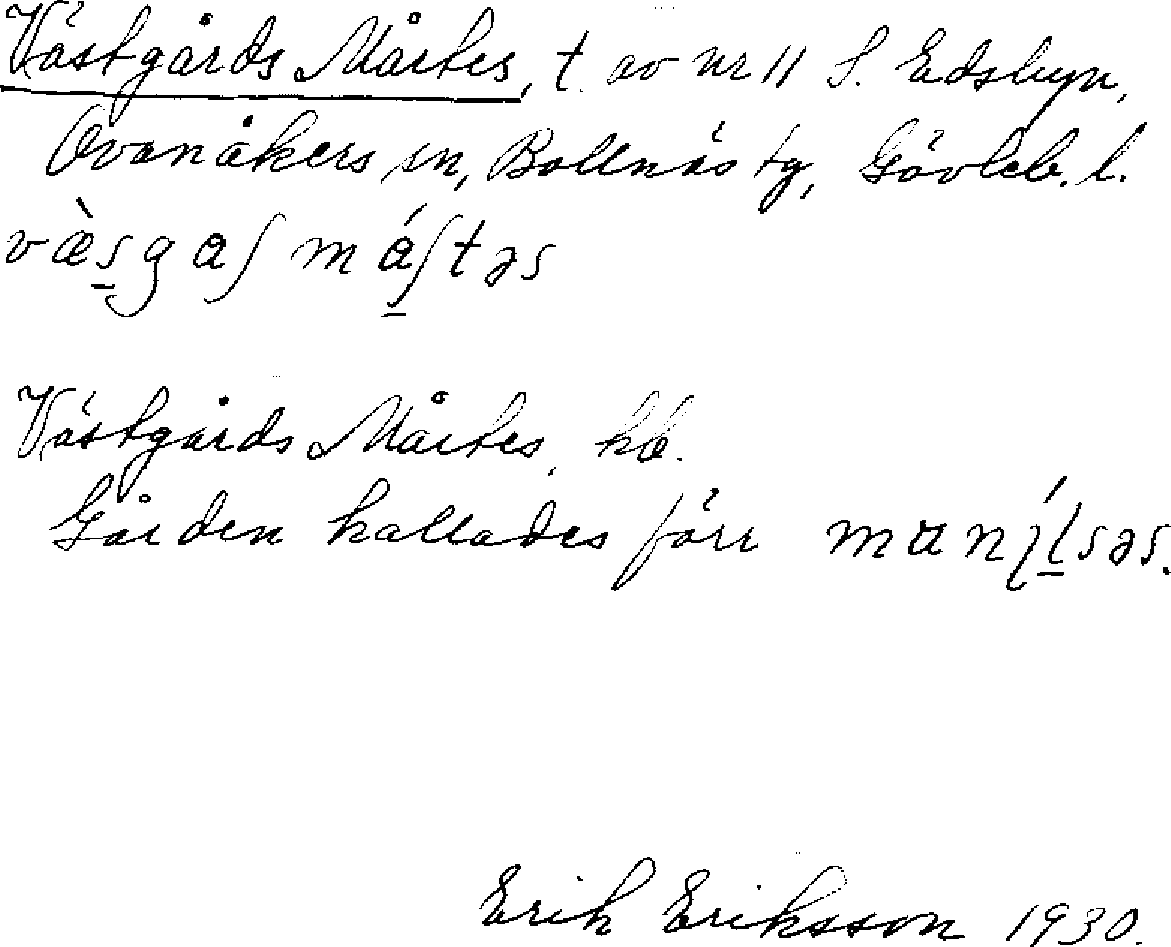 Västgårds Mårtes, t. av nr 11 S. Edsbyn,
Ovanåkers sn, Bollnäs tg, Gävleb. l.
væ̀s̱gaʃ má̱ʃtəs
Västgårds Mårtes, hd.
Gården kallades förr
Erik Eriksson 1930.